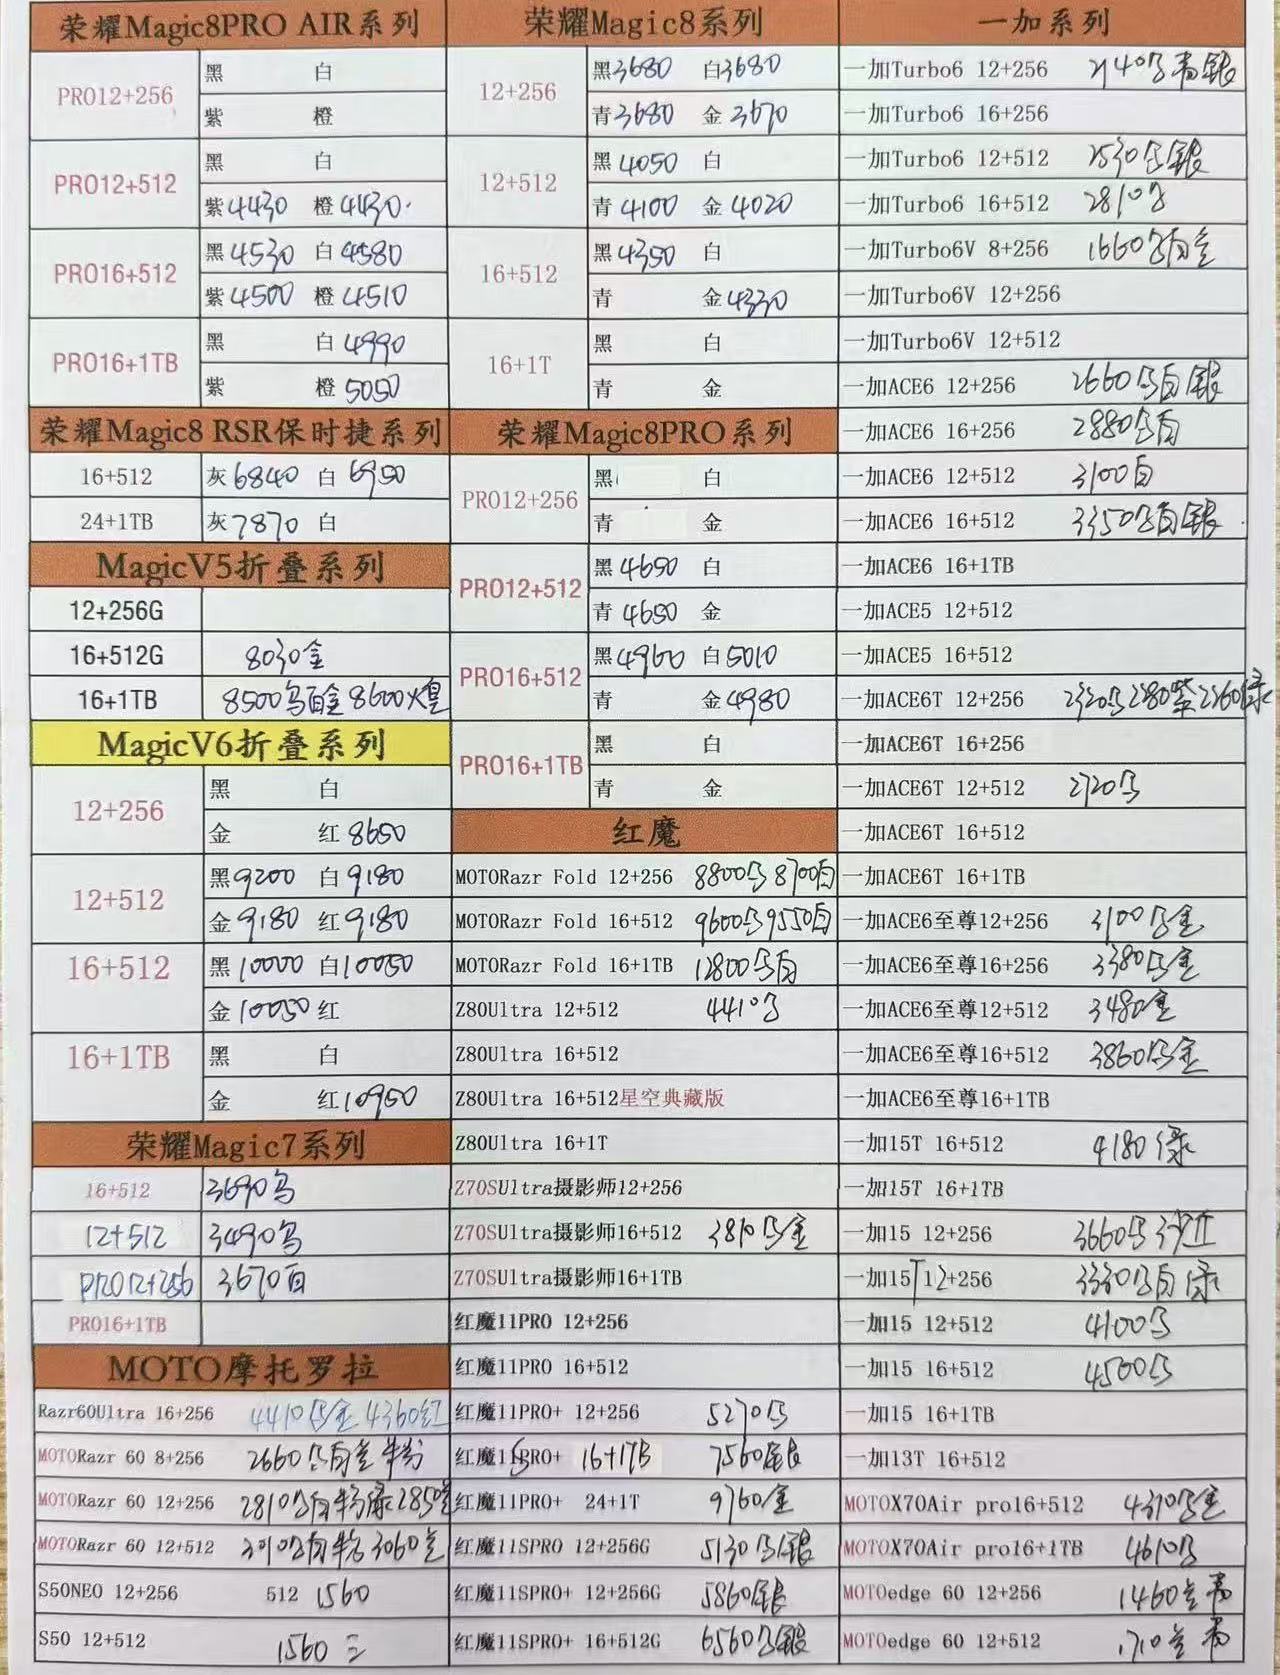 荣耀Magic8PRO AIR系列
PRO12+256 黑 白
紫 橙
PRO12+512 黑 白
紫4430 橙4430
PRO16+512 黑4530 白4580
紫4500 橙4510
PRO16+1TB 黑 白4990
紫 橙5050
荣耀Magic8 RSR保时捷系列
16+512 灰6840 白6950
24+1TB 灰7870 白
MagicV5折叠系列
12+256G
16+512G 8030金
16+1TB 8500 8600
MagicV6折叠系列
12+256 黑 白
金 红8650
12+512 黑9200 白9180
金9180 红9180
16+512 黑10000 白10050
金10050 红
16+1TB 黑 白
金 红10950
荣耀Magic7系列
16+512 3690
12+512 3490
PRO12+256 3670白
PRO16+1TB
MOTO摩托罗拉
Razr60Ultra 16+256 4410 4360红
MOTORazr 60 8+256 2660
MOTORazr 60 12+256 2810 2850
MOTORazr 60 12+512 3060
S50NEO 12+256 512 1560
S50 12+512 1560
荣耀Magic8系列
12+256 黑3680 白3680
青3680 金3670
12+512 黑4050 白
青4100 金4020
16+512 黑4350 白
青 金4330
16+1T 黑 白
青 金
荣耀Magic8PRO系列
PRO12+256 黑 白
青 金
PRO12+512 黑4650 白
青4650 金
PRO16+512 黑4960 白5010
青 金4980
PRO16+1TB 黑 白
青 金
红魔
MOTORazr Fold 12+256 8800 8700白
MOTORazr Fold 16+512 9600 9550白
MOTORazr Fold 16+1TB 12800 白
Z80Ultra 12+512 4410
Z80Ultra 16+512
Z80Ultra 16+512星空典藏版
Z80Ultra 16+1T
Z70SUltra摄影师12+256
Z70SUltra摄影师16+512 3810 金
Z70SUltra摄影师16+1TB
红魔11PRO 12+256
红魔11PRO 16+512
红魔11PRO+ 12+256 5270
红魔11SPRO+ 16+1TB 7560银
红魔11PRO+ 24+1T 9760金
红魔11SPRO 12+256G 5130 银
红魔11SPRO+ 12+256G 5860银
红魔11SPRO+ 16+512G 6560 银
一加系列
一加Turbo6 12+256 银
一加Turbo6 16+256
一加Turbo6 12+512 2530 银
一加Turbo6 16+512 2810
一加Turbo6V 8+256 1660
一加Turbo6V 12+256
一加Turbo6V 12+512
一加ACE6 12+256 2660 白银
一加ACE6 16+256 2880 白
一加ACE6 12+512 3100白
一加ACE6 16+512 3350 白银
一加ACE6 16+1TB
一加ACE5 12+512
一加ACE5 16+512
一加ACE6T 12+256 紫 绿
一加ACE6T 16+256
一加ACE6T 12+512 2720
一加ACE6T 16+512
一加ACE6T 16+1TB
一加ACE6至尊12+256 3100 金
一加ACE6至尊16+256 3380 金
一加ACE6至尊12+512 3480金
一加ACE6至尊16+512 3860 金
一加ACE6至尊16+1TB
一加15T 16+512 4180绿
一加15T 16+1TB
一加15 12+256 3660
一加15T 12+256 3330 白绿
一加15 12+512 4100
一加15 16+512 4500
一加15 16+1TB
一加13T 16+512
MOTOX70Air pro16+512 4310 金
MOTOX70Air pro16+1TB 4610
MOTOedge 60 12+256 1460
MOTOedge 60 12+512 1710